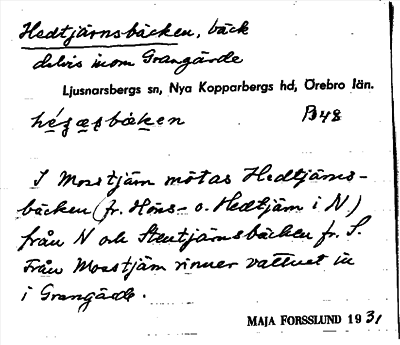 Hedtjärnsbäcken, bäck
delvis inom Grangärde
Ljusnarsbergs sn, Nya Kopparbergs hd, Örebro län.
bäken B48
I Mosstjärn mötas Hedtjärns-
bäcken (fr. Höns- o. Hedtjärn i N.)
från N och Stentjärnsbäcken fr. S.
Från Mosstjärn rinner vattnet in
i Grangärde.
MAJA FORSSLUND 1931